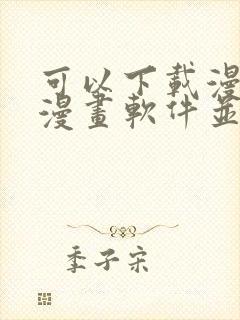 可以下載漫
漫畫軟件並
季子宋